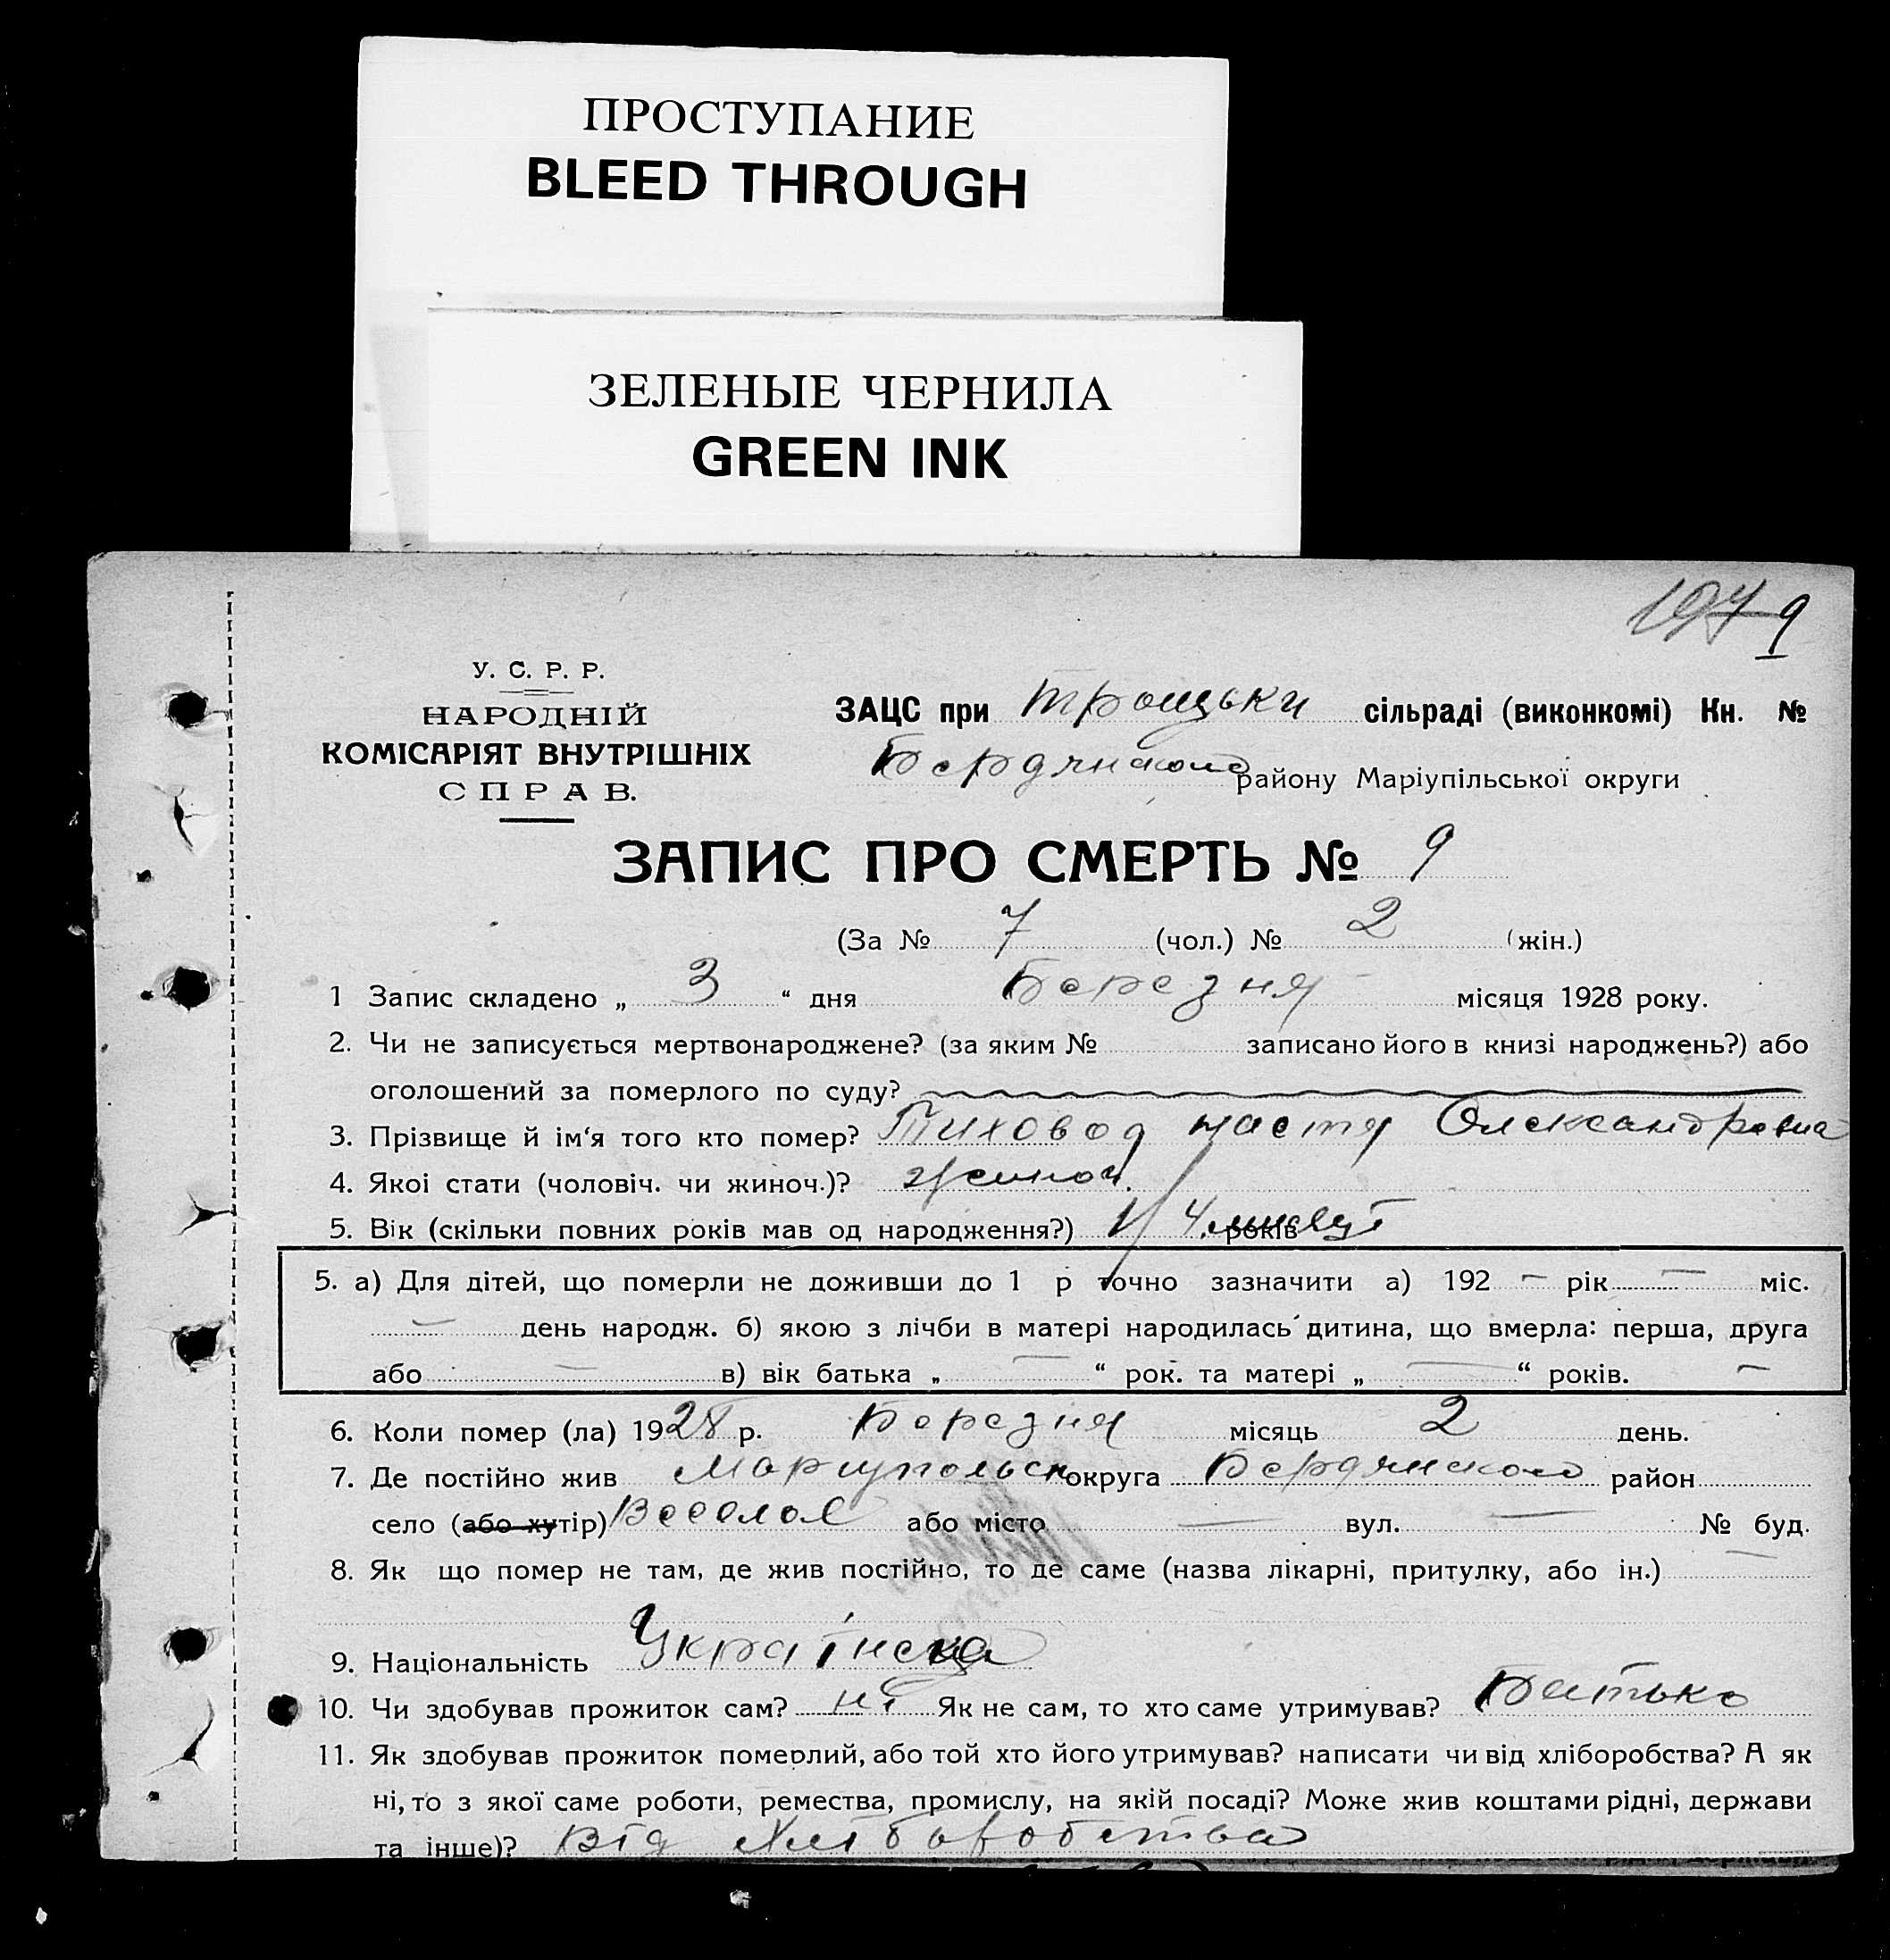 ПРОСТУПАНИЕ
BLEED THROUGH
ЗЕЛЕНЫЕ ЧЕРНИЛА
GREEN INK
9
У. С. Р. Р.
НАРОДНІЙ
КОМІСАРІЯТ ВНУТРІШНІХ
СПРАВ.
ЗАЦС при Троцьки сільраді (виконкомі) Кн. №
Бердянского району Маріупільської округи
ЗАПИС ПРО СМЕРТЬ № 9
(За № 7 (чол.) № 2 (жін.)
1 Запис складено „ 3 “ дня Березня місяця 1928 року.
2. Чи не записується мертвонароджене? (за яким № записано його в книзі народжень?) або
оголошений за померлого по суду?
3. Прізвище й ім‘я того кто помер? Тиховод Настя Олександровна
4. Якоі стати (чоловіч. чи жиноч.)? жиноч.
5. Вік (скільки повних років мав од народження?) 4 років
5. а) Для дітей, що померли не доживши до 1 р точно зазначити а) 192 — рік — міс.
— день народж. б) якою з лічби в матері народилась дитина, що вмерла: перша, друга
або — в) вік батька „ — “ рок. та матері „ — “ років. —
6. Коли помер (ла) 1928 р. Березня місяць 2 день.
7. Де постійно жив Мариупольск округа Бердянского район
село (або хутір) Веселое або місто — вул. — № буд.
8. Як що помер не там, де жив постійно, то де саме (назва лікарні, притулку, або ін.) —
9. Національність Українска
10. Чи здобував прожиток сам? ні Як не сам, то хто саме утримував? Батько
11. Як здобував прожиток померлий, або той хто його утримував? написати чи від хліборобства? А як
ні, то з якої саме роботи, ремества, промислу, на якій посаді? Може жив коштами рідні, держави
та інше)? Від хліборобства